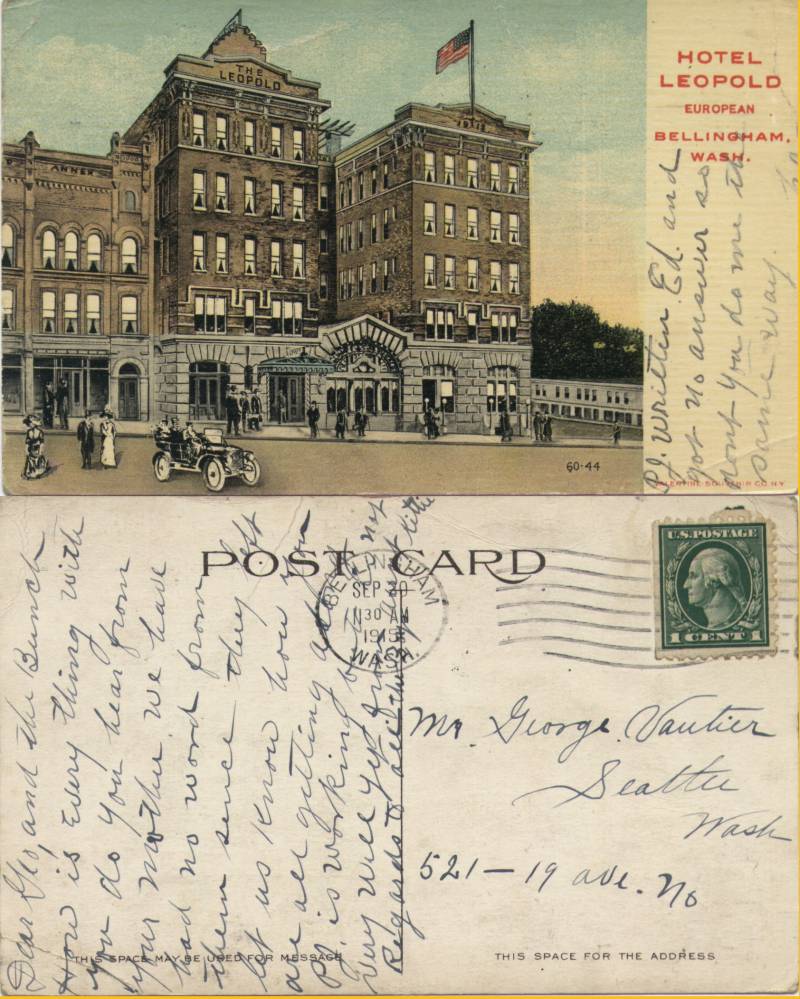 THE
LEOPOLD
ANNEX
HOTEL
LEOPOLD
EUROPEAN
BELLINGHAM,
WASH.
60-44
VALENTINE SOUVENIR CO. N.Y.
PJ. Written Ed. and
got no answer so
dont you do me the
same way.
POST CARD
BELLINGHAM
SEP 30
1130 AM
WASH.
U.S. POSTAGE
1 CENT 1
Dear Geo, and the Bunch
How is Every thing with
you do you hear from
your Mother. We have
had no word from
them sence they left
let us Know how you
are all getting
PJ. is working
Very Well
Regards to all
Mr. George Vautier
Seattle
Wash
521-19 ave. No
THIS SPACE MAY BE USED FOR MESSAGE
THIS SPACE FOR THE ADDRESS